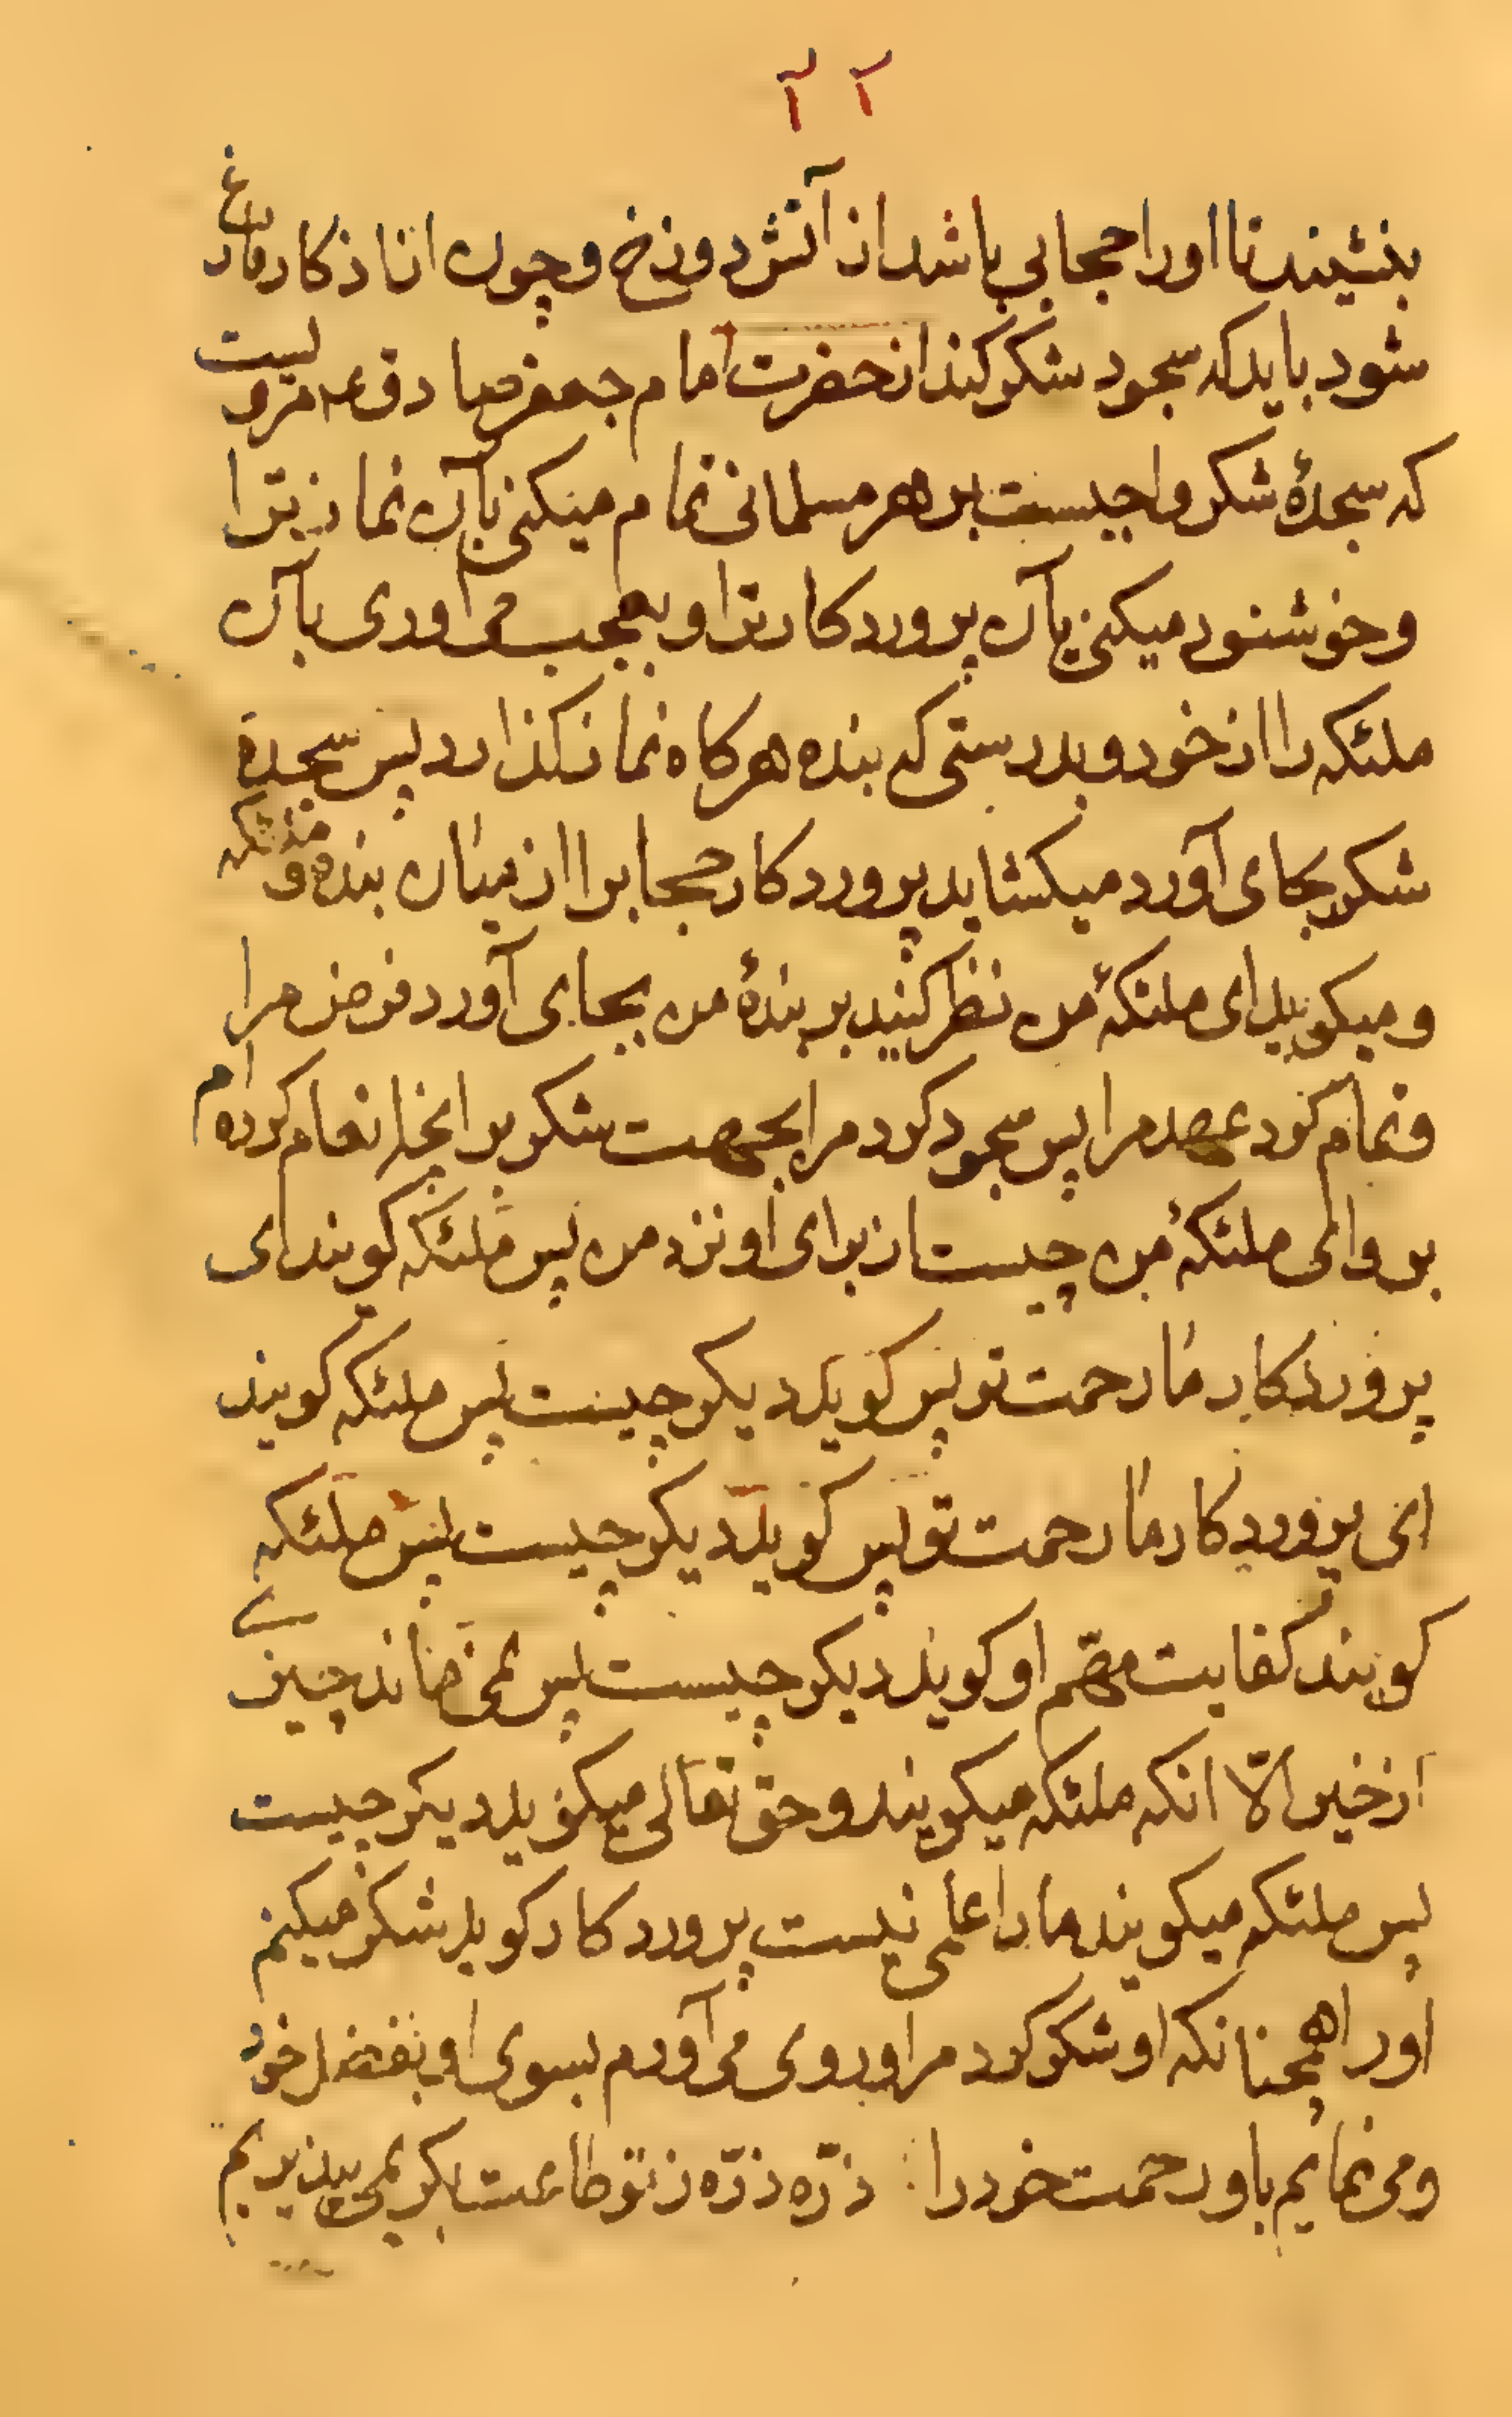 ۲۲
بنشیند تا او را حجابی باشد از آتش دوزخ و چون از اذکار فارغ
شود باید که سجود شکر کند از حضرت امام جعفر صادق ع مرویست
که سجدهٔ شکر واجبست بر هر مسلمانی تمام میکنی بآن نماز ترا
و خوشنود میکنی بآن پروردکار ترا و بعجب می اوری بآن
ملئکه را از خود و بدرستی که بنده هرکاه نماز کذارد پس سجدهٔ
شکر بجای آورد میکشاید پروردکار حجابرا از میان بنده و ملئکه
و میکوید ای ملئکهٔ من نظر کنید بر بندهٔ من بجای آورد فرض مرا
و تمام کرد عهد مرا پس سجود کرد مرا بجهت شکر بر انچه انعام کرده ام
بر و ای ملئکهٔ من چیست از برای او نزد من پس ملئکه کویند ای
پروردکار ما رحمت تو پس کوید دیکر چیست پس ملئکه کویند
ای پروردکار ما رحمت تو پس کوید دیکر چیست پس ملئکه
کویند کفایت مهم او کوید دیکر چیست پس نمی ماند چیزی
از خیر الّا انکه ملئکه میکویند و حق تعالی میکوید دیکر چیست
پس ملئکه میکویند ما را علمی نیست پروردکار کوید شکر میکنم
اورا همچنانکه او شکر کرد مرا و روی می آورم بسوی او بفضل خود
و می نمایم باو رحمت خود را ذرّه ذرّه ز تو طاعت بکریمی بپذیریم